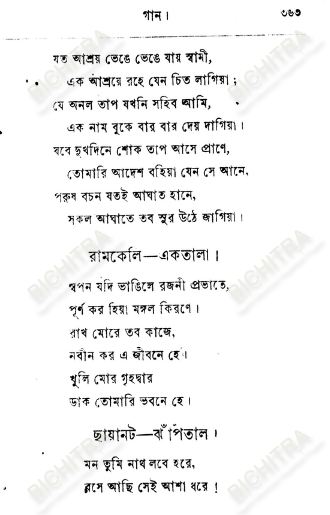 গান ।
৩৬৩
যত আশ্রয় ভেঙে ভেঙে যায় স্বামী,
এক আশ্রয়ে রহে যেন চিত লাগিয়া ;
যে অনল তাপ যখনি সহিব আমি,
এক নাম বুকে বার বার দেয় দাগিয়া ।
যবে দুখদিনে শোক তাপ আসে প্রাণে,
তোমারি আদেশ বহিয়া যেন সে আনে,
পরুষ বচন যতই আঘাত হানে,
সকল আঘাতে তব সুর উঠে জাগিয়া ।
রামকেলি—একতালা ।
স্বপন যদি ভাঙিলে রজনী প্রভাতে,
পূর্ণ কর হিয়া মঙ্গল কিরণে ।
রাখ মোরে তব কাজে,
নবীন কর এ জীবনে হে ।
খুলি মোর গৃহদ্বার
ডাক তোমারি ভবনে হে ।
ছায়ানট—ঝাঁপতাল ।
মন তুমি নাথ লবে হরে,
বসে আছি সেই আশা ধরে !
BICHITRA